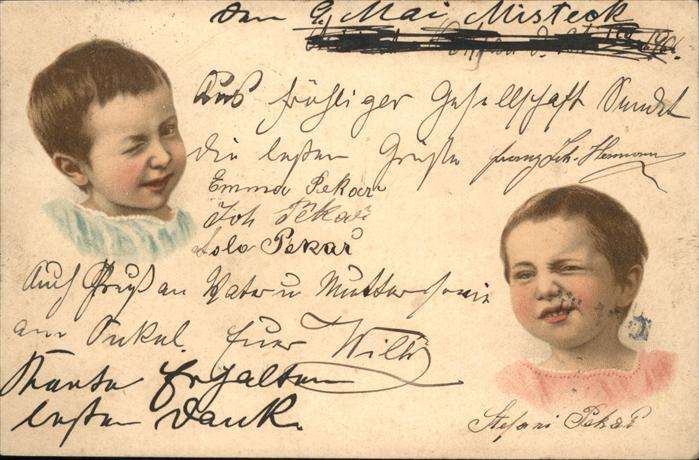 den 9. Mai Misteck
Aus fröhliger Gesellschaft Sendet
die besten Grüße Franz Joh. Hermann
Emma Pekař
Joh Pekař
Lola Pekař
Auch Gruß an Vater u Mutter sowie
am Onkel. Euer Willi
Karte Erhalten
besten Dank.
Stefani Pekař